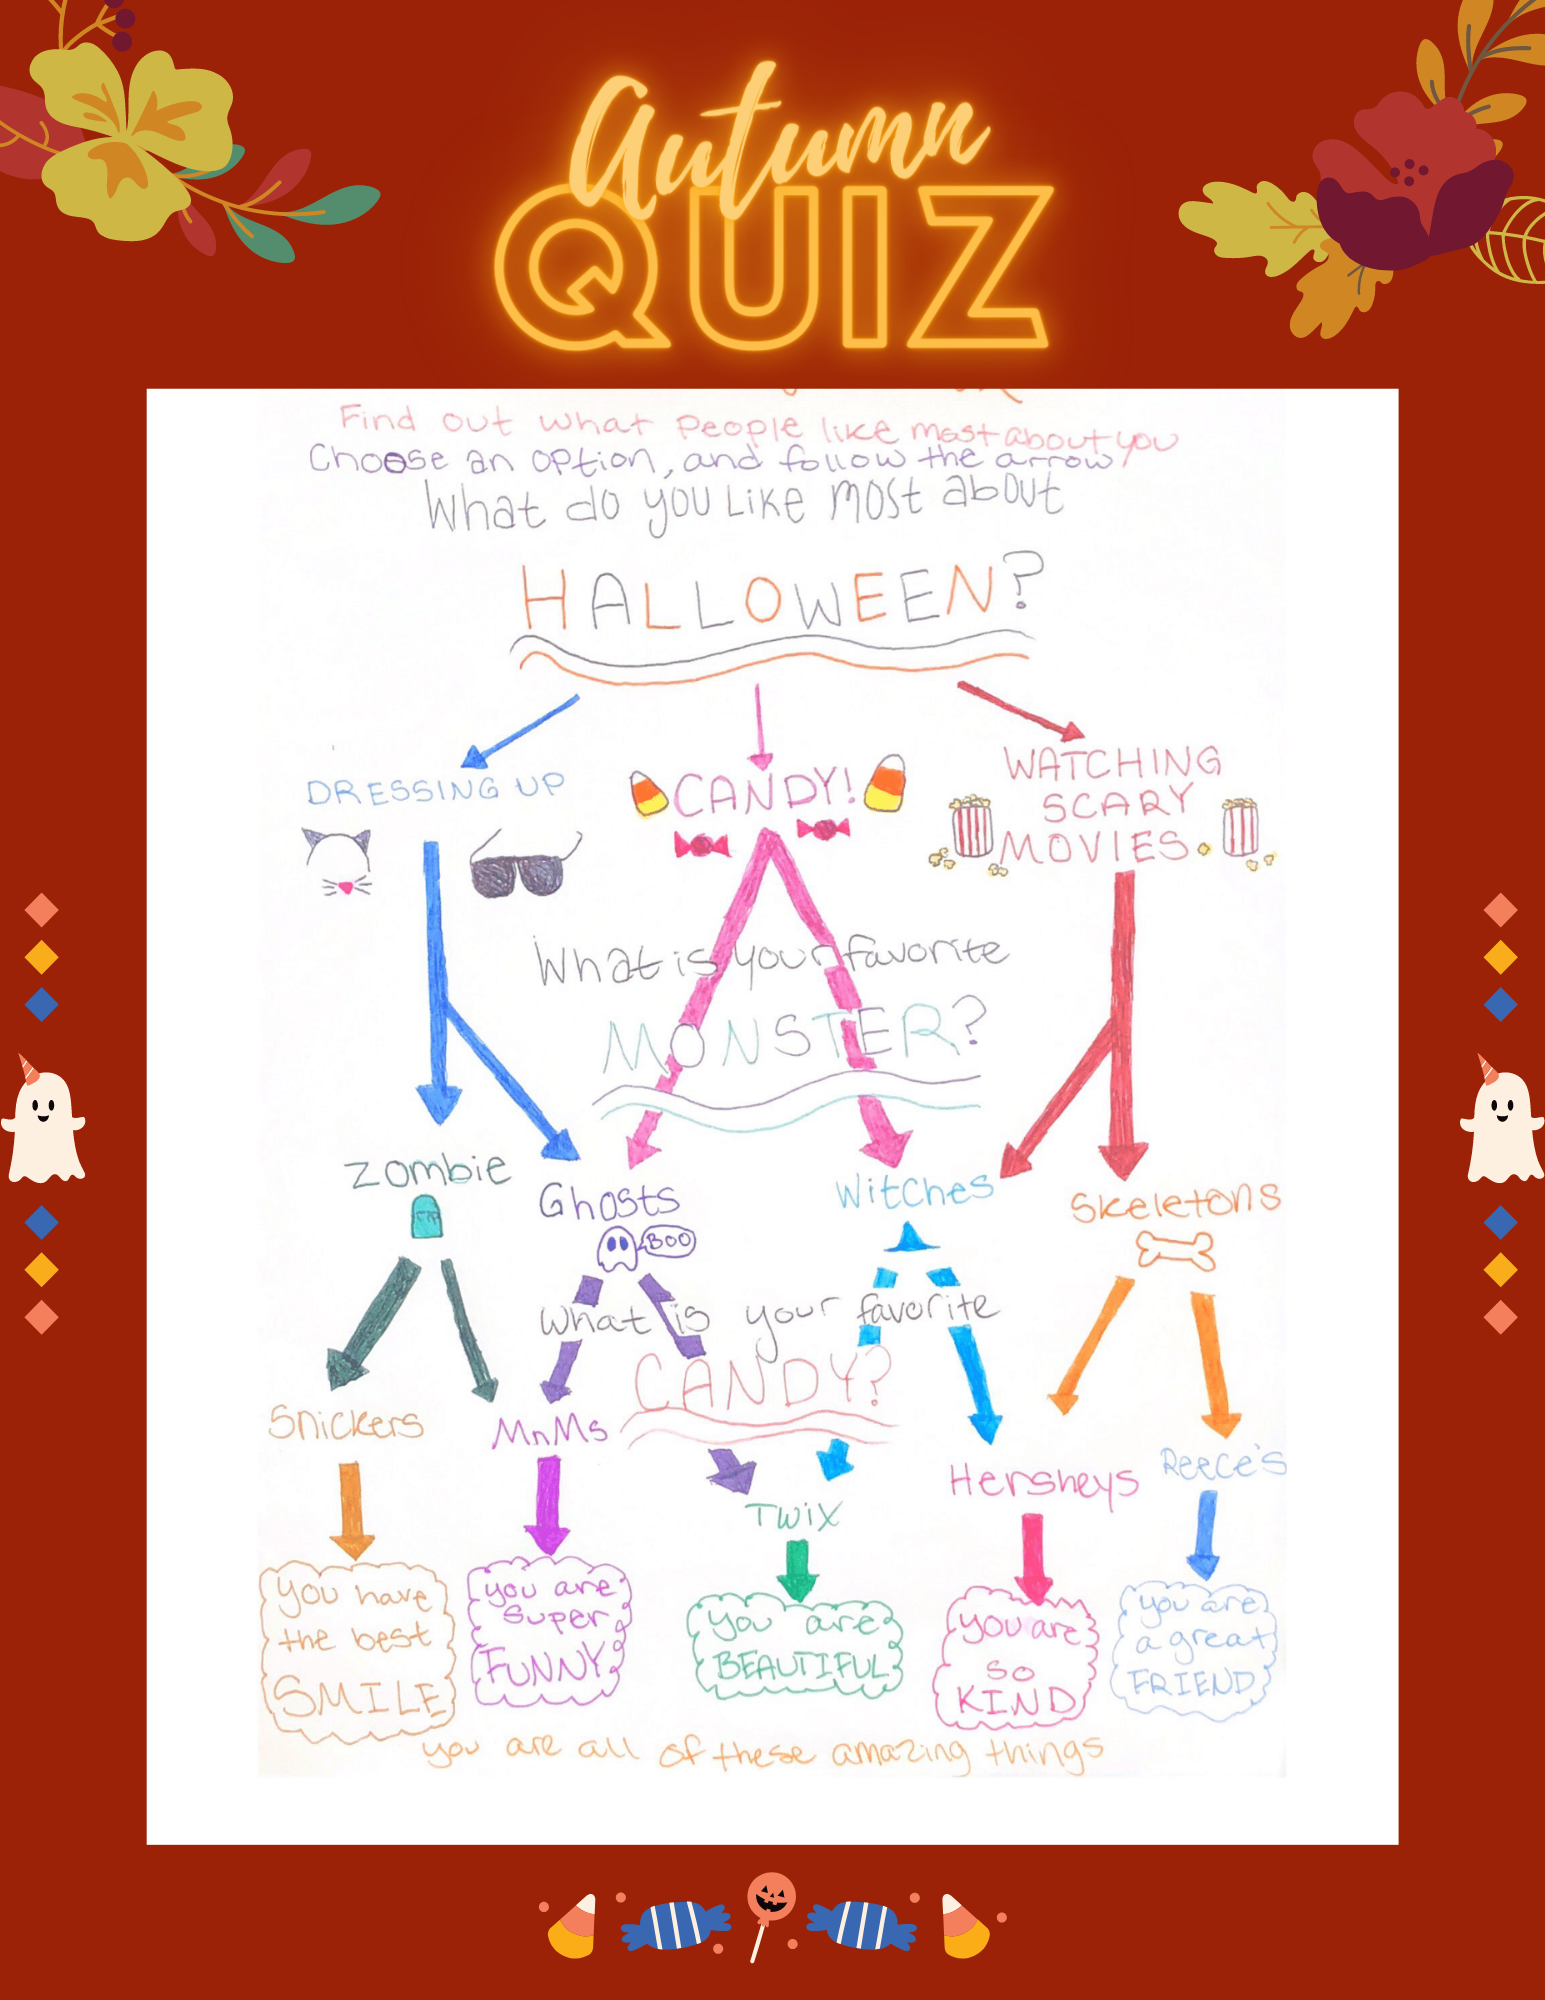 Autumn
QUIZ
Find out what People like most about you
Choose an option, and follow the arrow
What do you Like most about
HALLOWEEN?
DRESSING UP
CANDY!
WATCHING
SCARY
MOVIES
What is your favorite
MONSTER?
Zombie
Ghosts
Witches
Skeletons
BOO
What is your favorite
CANDY?
Snickers
MnMs
Twix
Hersheys
Reece's
you have
the best
SMILE
you are
super
FUNNY
you are
BEAUTIFUL
you are
so
KIND
you are
a great
FRIEND
you are all of these amazing things